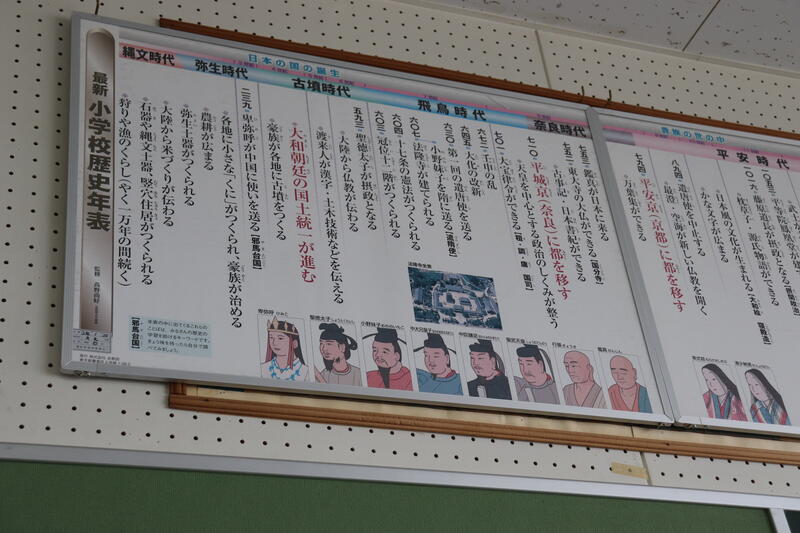 最新 小学校歴史年表
日本の国の誕生
貴族の世の中
縄文時代
弥生時代
古墳時代
飛鳥時代
奈良時代
平安時代
狩りや漁のくらし(やく一万年の間続く)
石器や縄文土器、竪穴住居がつくられる
大陸から米づくりが伝わる
弥生土器がつくられる
農耕が広まる
各地に小さな「くに」がつくられ 豪族が治める
二三九 卑弥呼が中国に使いを送る [邪馬台国]
豪族が各地に古墳をつくる
大和朝廷の国土統一が進む
渡来人が漢字・土木技術などを伝える
大陸から仏教が伝わる
五九三 聖徳太子が摂政となる
六〇三 冠位十二階がつくられる
六〇四 十七条の憲法がつくられる
六〇七 法隆寺が建てられる
小野妹子を隋に送る [遣隋使]
六三〇 第一回の遣唐使を送る
六四五 大化の改新
六七二 壬申の乱
七〇一 大宝律令ができる [租・調・庸 国司]
天皇を中心とする政治のしくみが整う
七一〇 平城京(奈良)に都を移す
古事記・日本書紀ができる
七五二 東大寺の大仏ができる [国分寺]
七五三 鑑真が日本に来る
万葉集ができる
七九四 平安京(京都)に都を移す
最澄、空海が新しい仏教を開く
八九四 遣唐使を中止する
かな文字が広まる
日本風の文化が生まれる
枕草子・源氏物語ができる
一〇一六 藤原道長が摂政となる
一〇五三 平等院鳳凰堂が
法隆寺全景
[邪馬台国]
卑弥呼 ひみこ
聖徳太子
小野妹子
中大兄皇子
中臣鎌足
聖武天皇
行基
鑑真
紫式部
清少納言